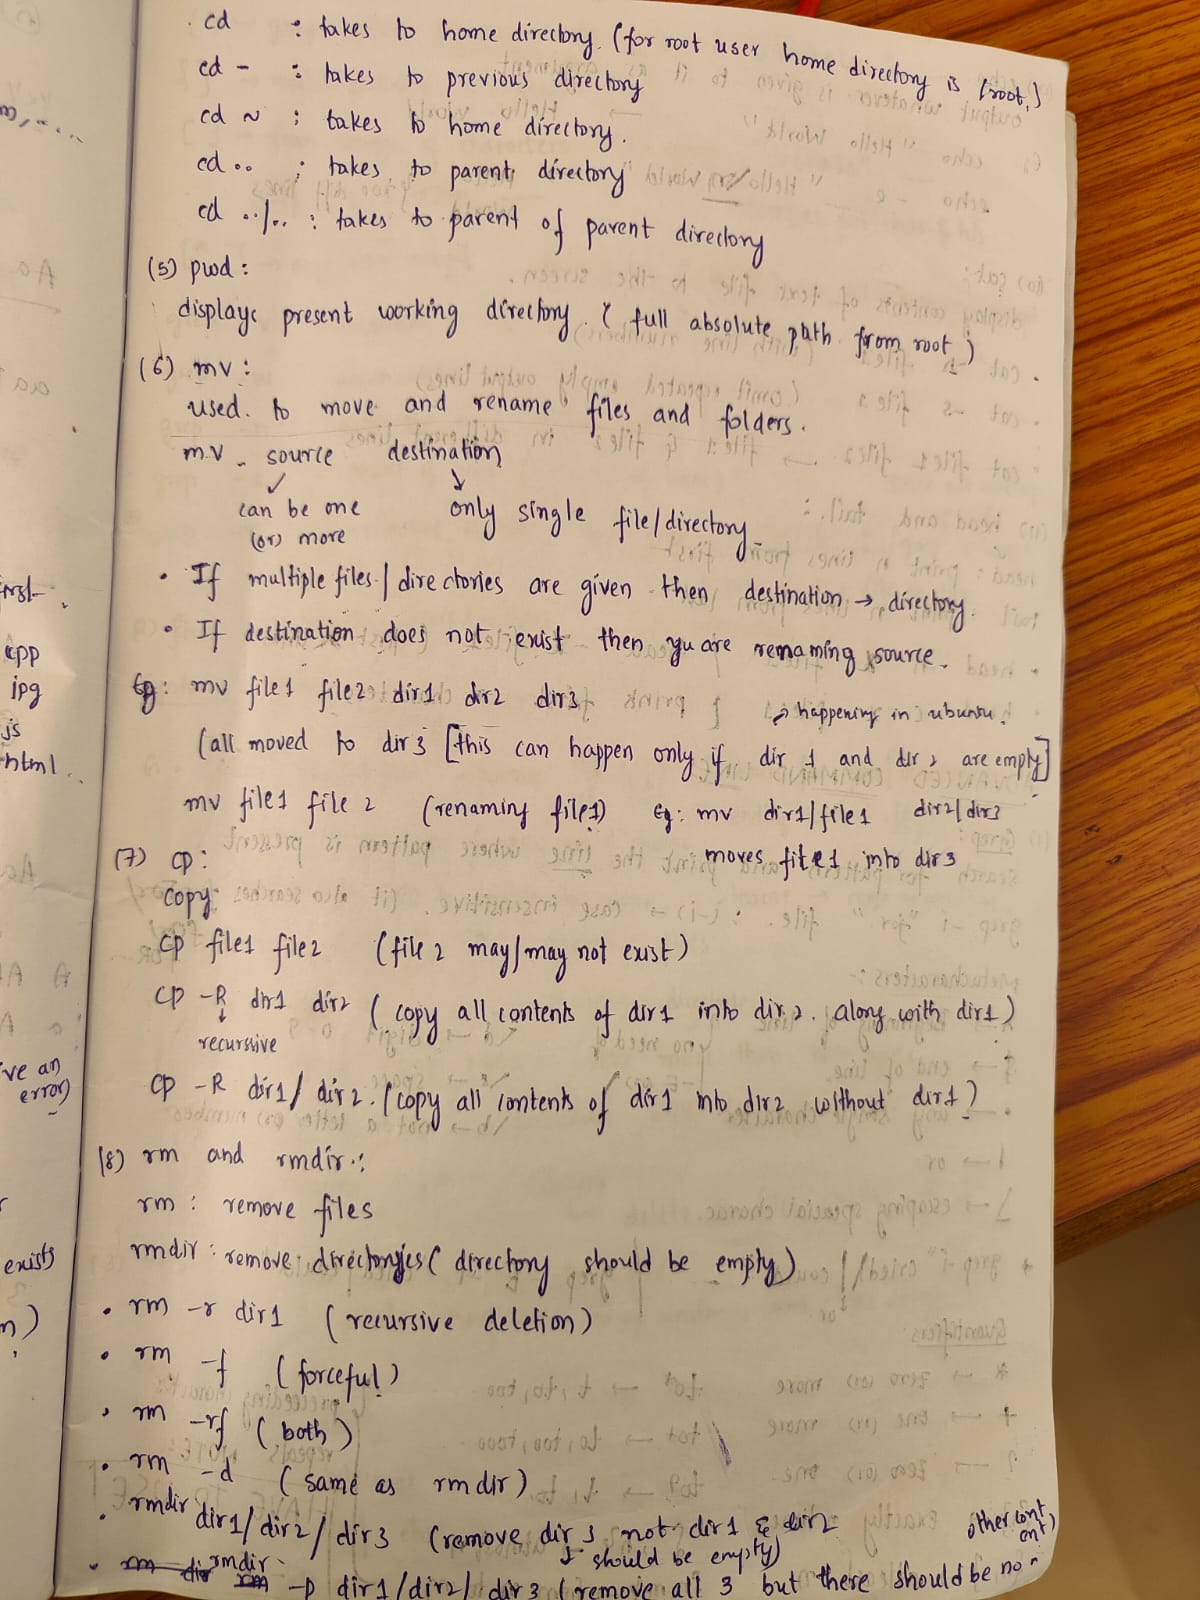 cd : takes to home directory. (for root user home directory is /root.)
cd - : takes to previous directory
cd ~ : takes to home directory.
cd .. : takes to parent directory
cd ../.. : takes to parent of parent directory
(5) pwd :
displays present working directory. ( full absolute path from root )
(6) mv :
used to move and rename files and folders.
mv source destination
can be one only single file/directory
(or) more
• If multiple files/directories are given then destination → directory.
• If destination does not exist then you are renaming source.
Eg: mv file1 file2 dir1 dir2 dir3
→ happening in ubuntu.
(all moved to dir3 [this can happen only if dir 1 and dir 2 are empty]
mv file1 file 2 (renaming file1) Eg: mv dir1/file1 dir2/dir3
moves file1 into dir3
(7) cp :
copy
cp file1 file2 (file 2 may/may not exist)
cp -R dir1 dir2 ( copy all contents of dir1 into dir2. along with dir1 )
↓
recursive
cp -R dir1/ dir2. (copy all contents of dir1 into dir2 without dir1)
(8) rm and rmdir :
rm : remove files
rmdir : remove directories ( directory should be empty)
• rm -r dir1 ( recursive deletion)
• rm -f ( forceful )
• rm -rf ( both )
• rm -d ( same as rmdir )
• rmdir dir1/dir2/dir3 (remove dir3 not dir1 & dir2
↓ should be empty)
• rmdir -p dir1/dir2/dir3 ( remove all 3 but there should be no other cont
ent)
cpp
jpg
js
html
ive an
error)
exists